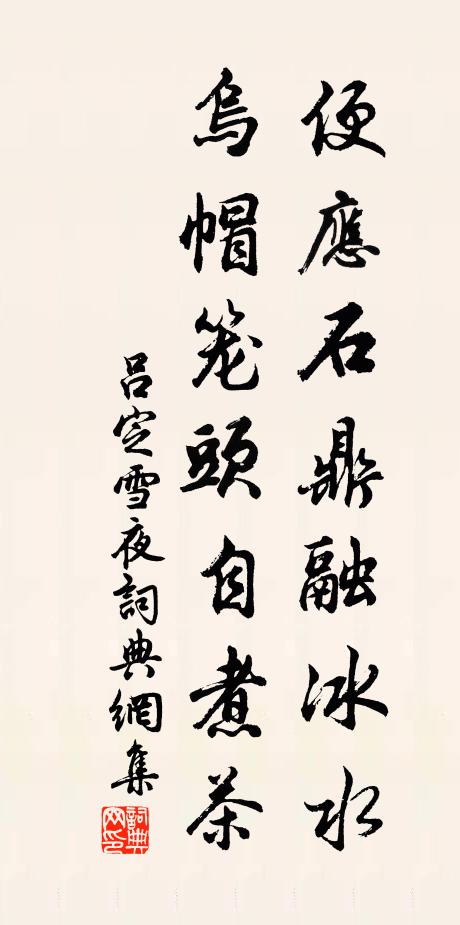 便應石鼎融冰水
烏帽笼頭自煮茶
吕定雪夜詞典網集
詞典网印